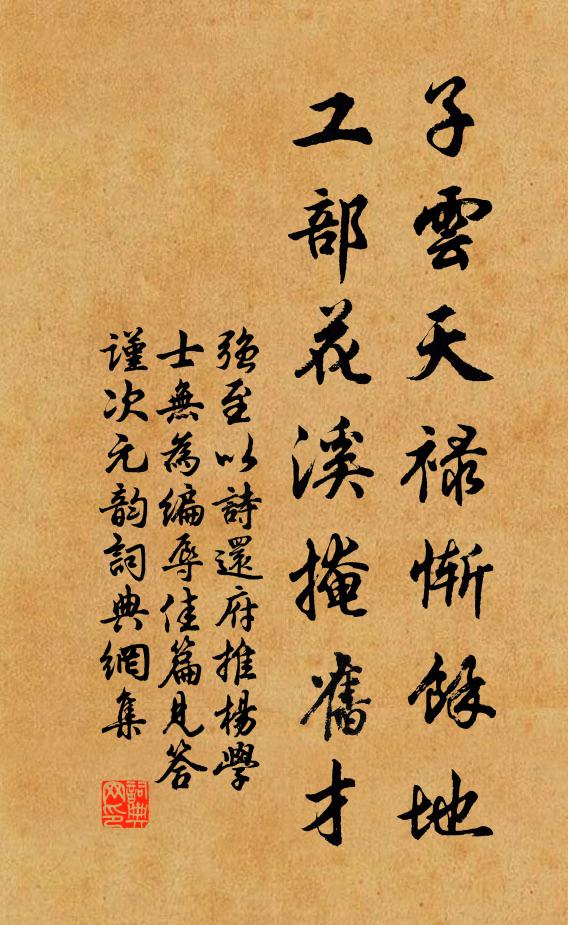 子雲天禄慚餘地
工部花溪掩舊才
强至以詩還府推楊學
士無為編辱佳篇見答
謹次元韵詞典網集
詞典
网印